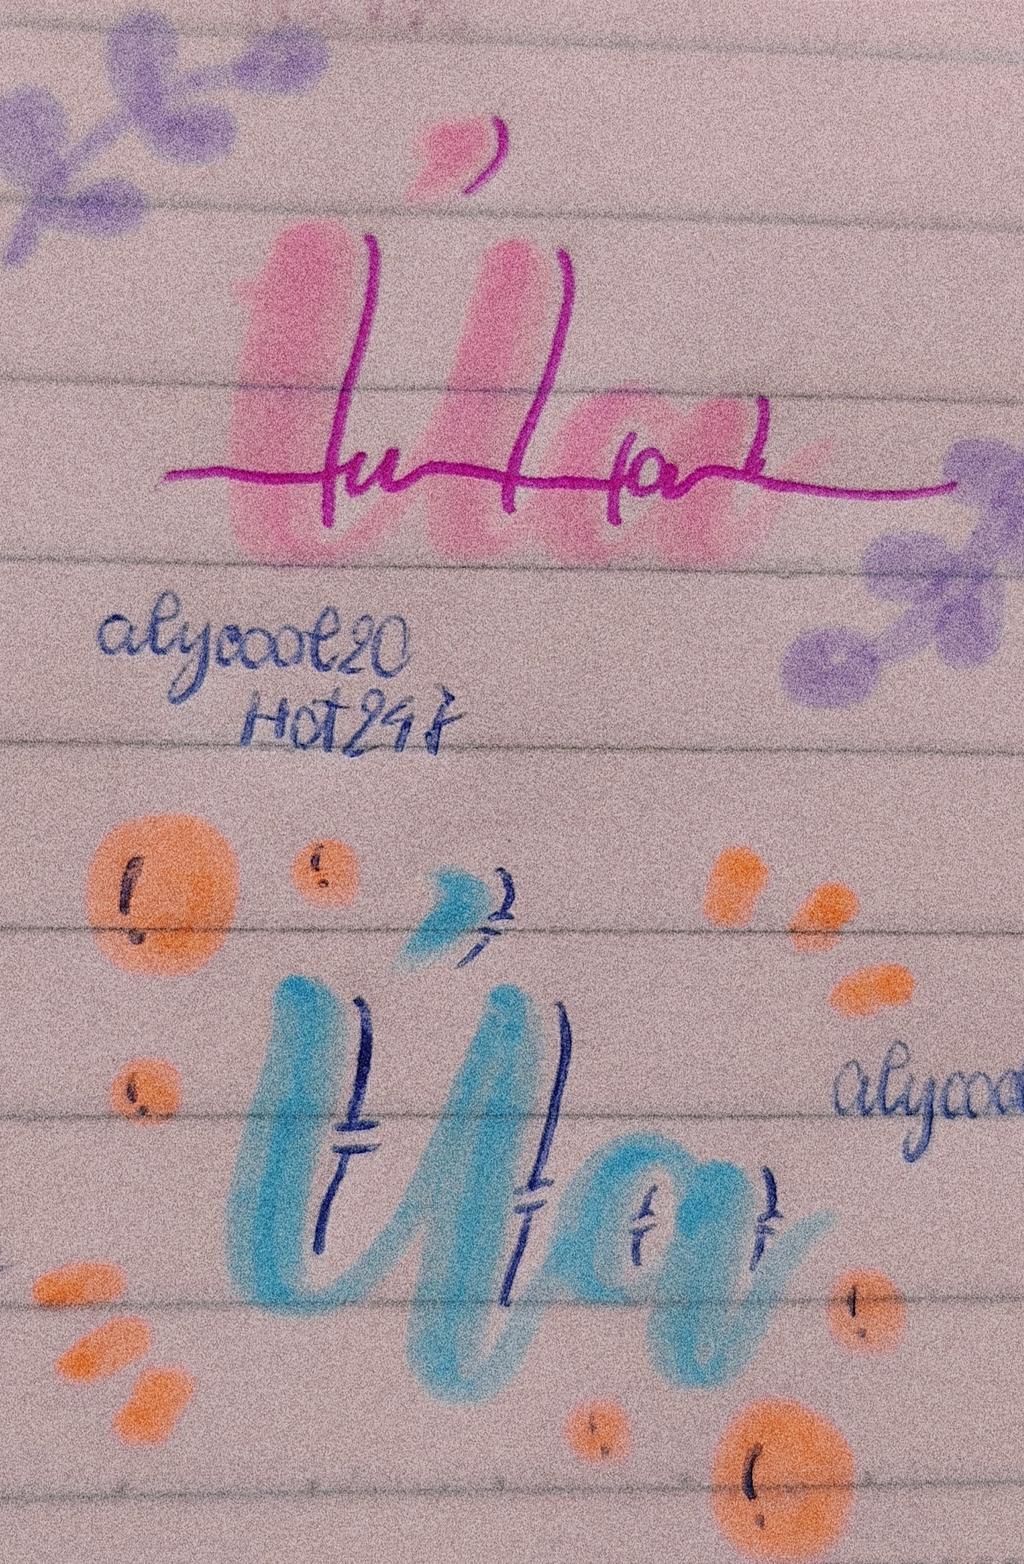 Úa
alycool20
Úa
alycoo